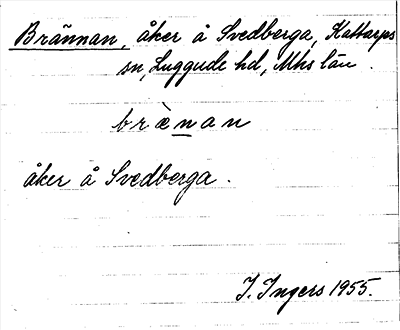 Brännan, åker å Svedberga, Kattarps
sn, Luggude hd, Mhs län.
brὲnan
åker å Svedberga.
I. Ingers 1955.